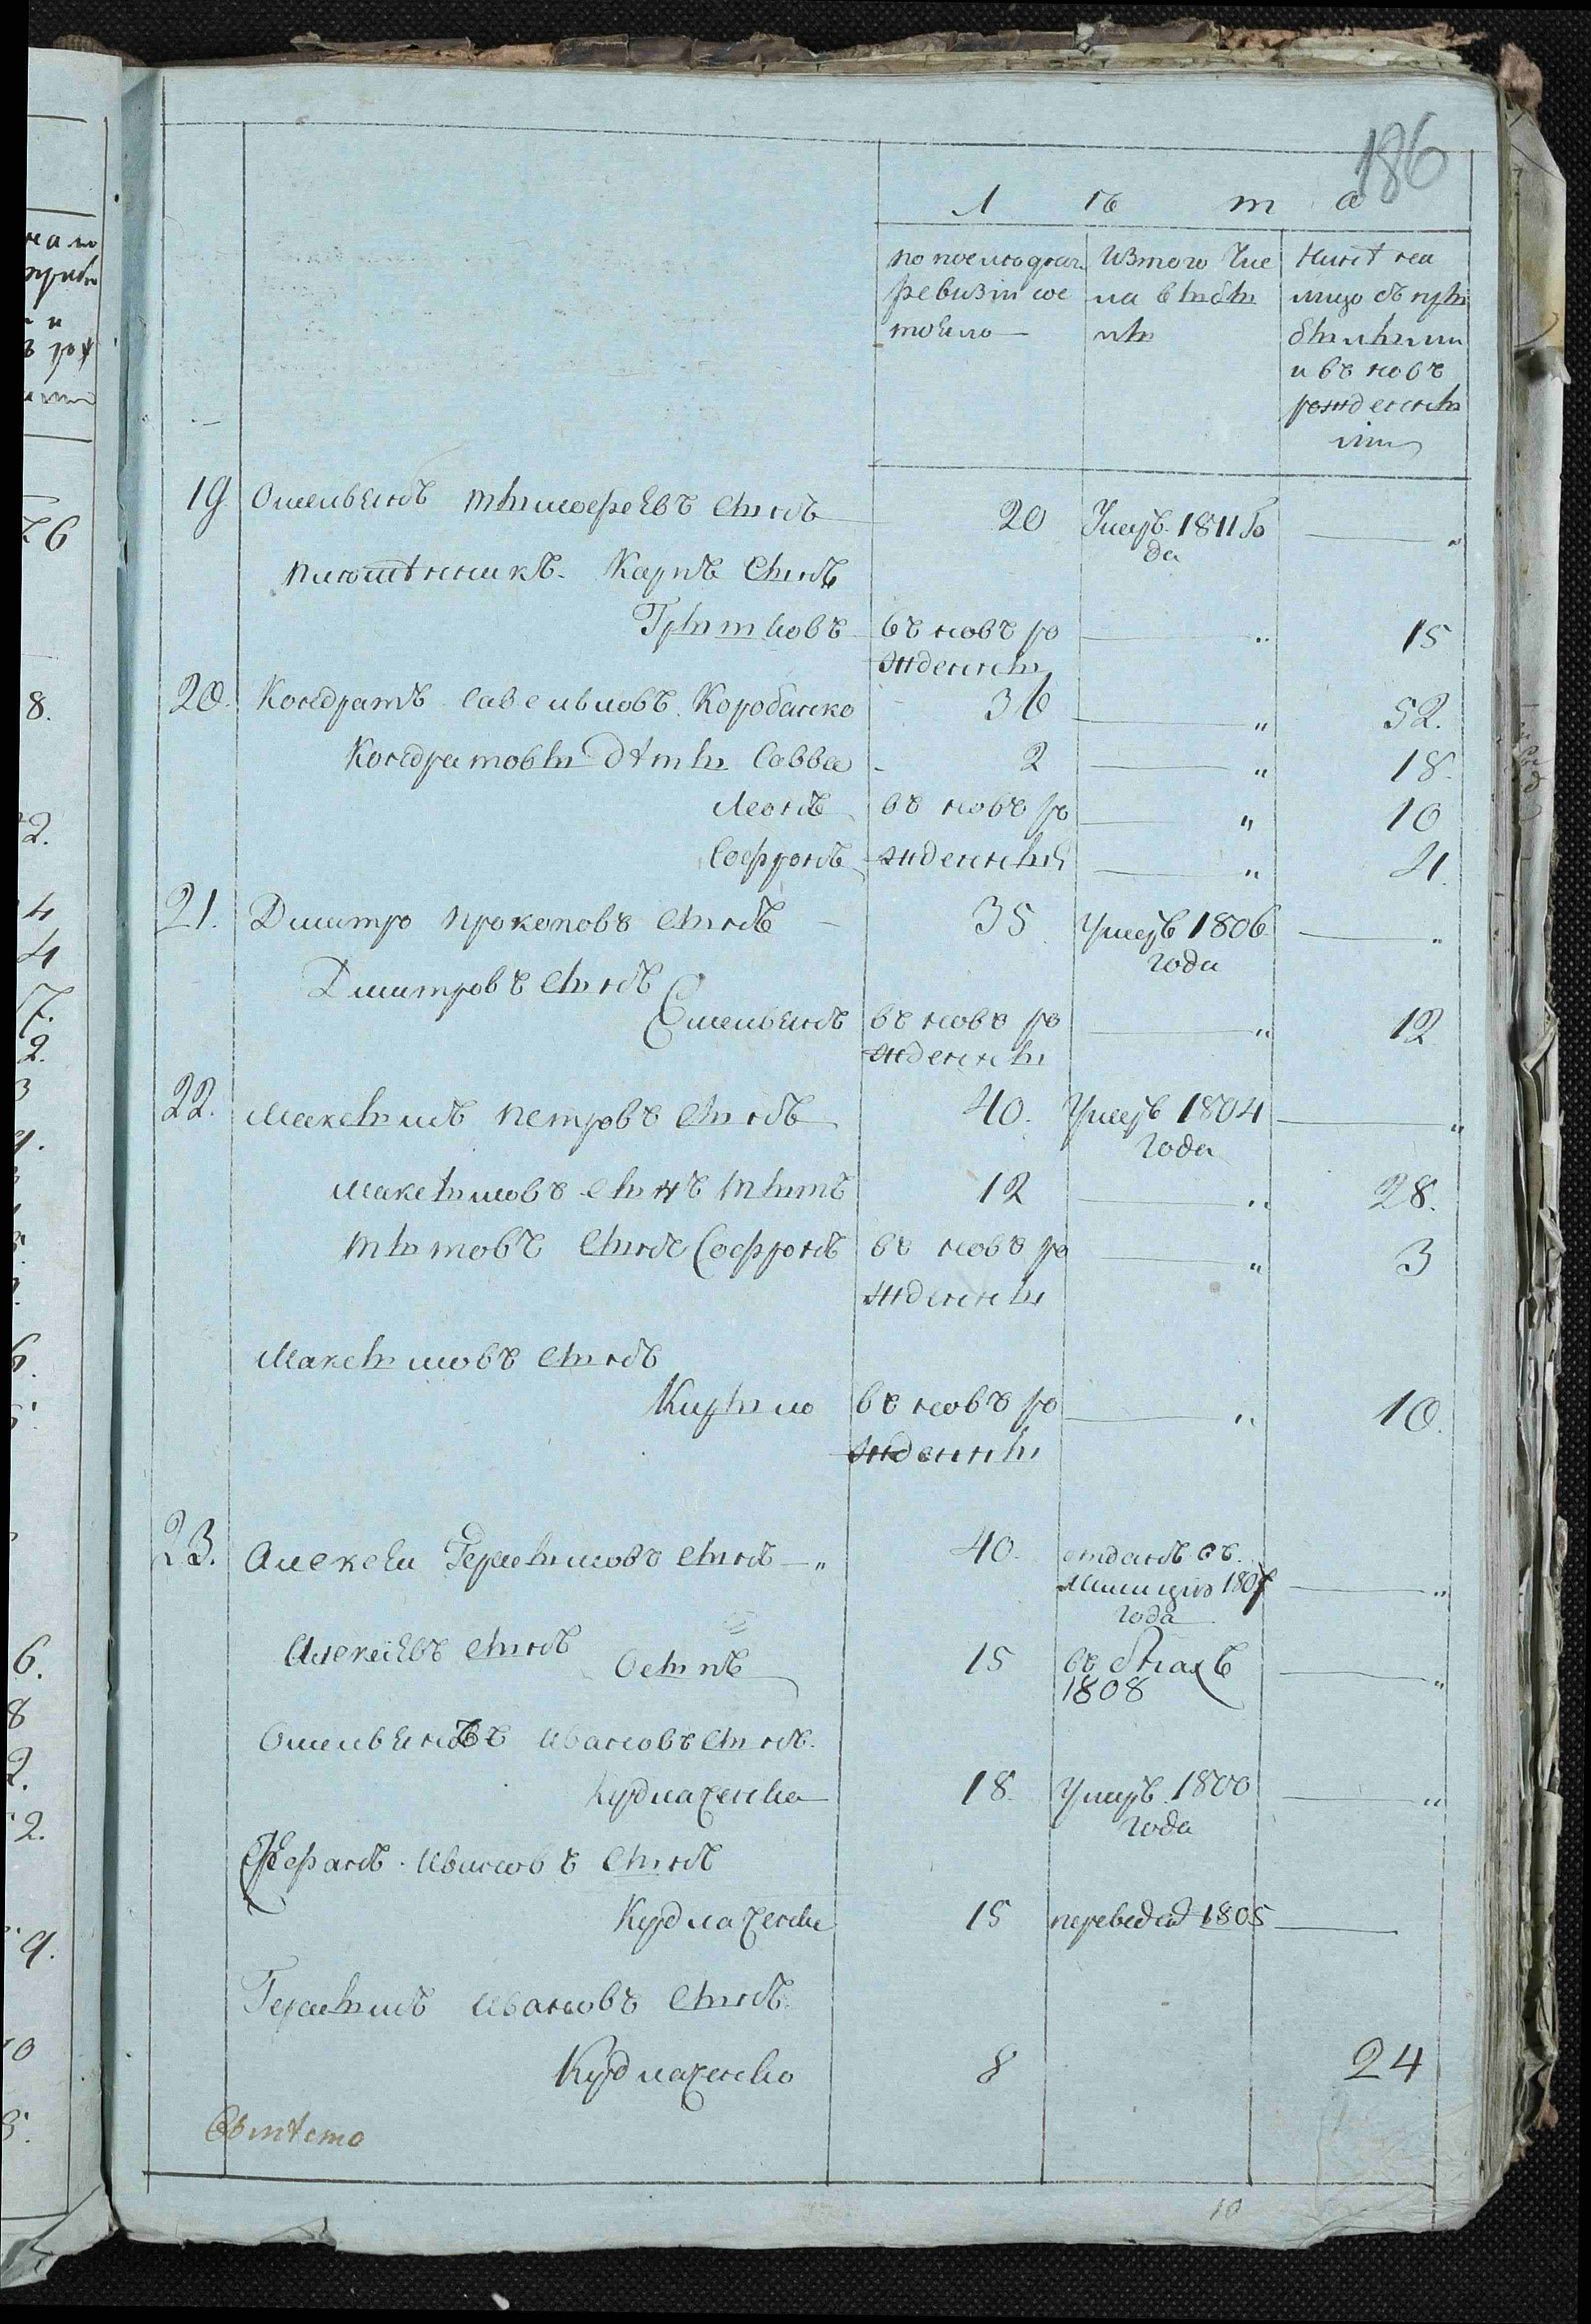 186
Л ѣ т а
по последней Изтого Чис Ныне на
ревизіи сос ла выбы лицо съ при
тояло ло былыми
и въ новъ
рожденны
ми
19 Омельянъ Тимофеевъ сынъ 20 Умеръ 1811 го "
да
племѣнникъ Карпъ сынъ
Грицковъ въ новъ ро " 15
жденны
20. Кондратъ Савельловъ Коробанко 36 " 52.
Кондратовы дѣти Савва 2 " 18.
Леонъ въ новъ ро " 10
Софронъ жденный " 4.
21. Дмитро Прокоповъ сынъ 35 Умеръ 1806 "
года
Дмитровъ сынъ
Емельянъ въ новъ ро " 12
жденны
22. Максимъ Петровъ сынъ 40. Умеръ 1804 "
года
Максимовъ сынъ Титъ 12 " 28.
Титовъ сынъ Софронъ въ новъ ро " 3
жденны
Максимовъ сынъ
Кирило въ новъ ро " 10.
жденны
23. Алексеи Герасимовъ сынъ " 40. отданъ въ
милицію 1807 "
года
Алексіевъ сынъ Осипъ 15 въ бѣгахъ "
1808
Омельяновъ Ивановъ сынъ.
Кудлаченка 18. Умеръ 1800 "
года
Ивановъ сынъ
Кудлаченка 15 переведенъ 1805
Герасимъ Ивановъ сынъ.
Кудлаченко 8 24
Вмѣсто
10